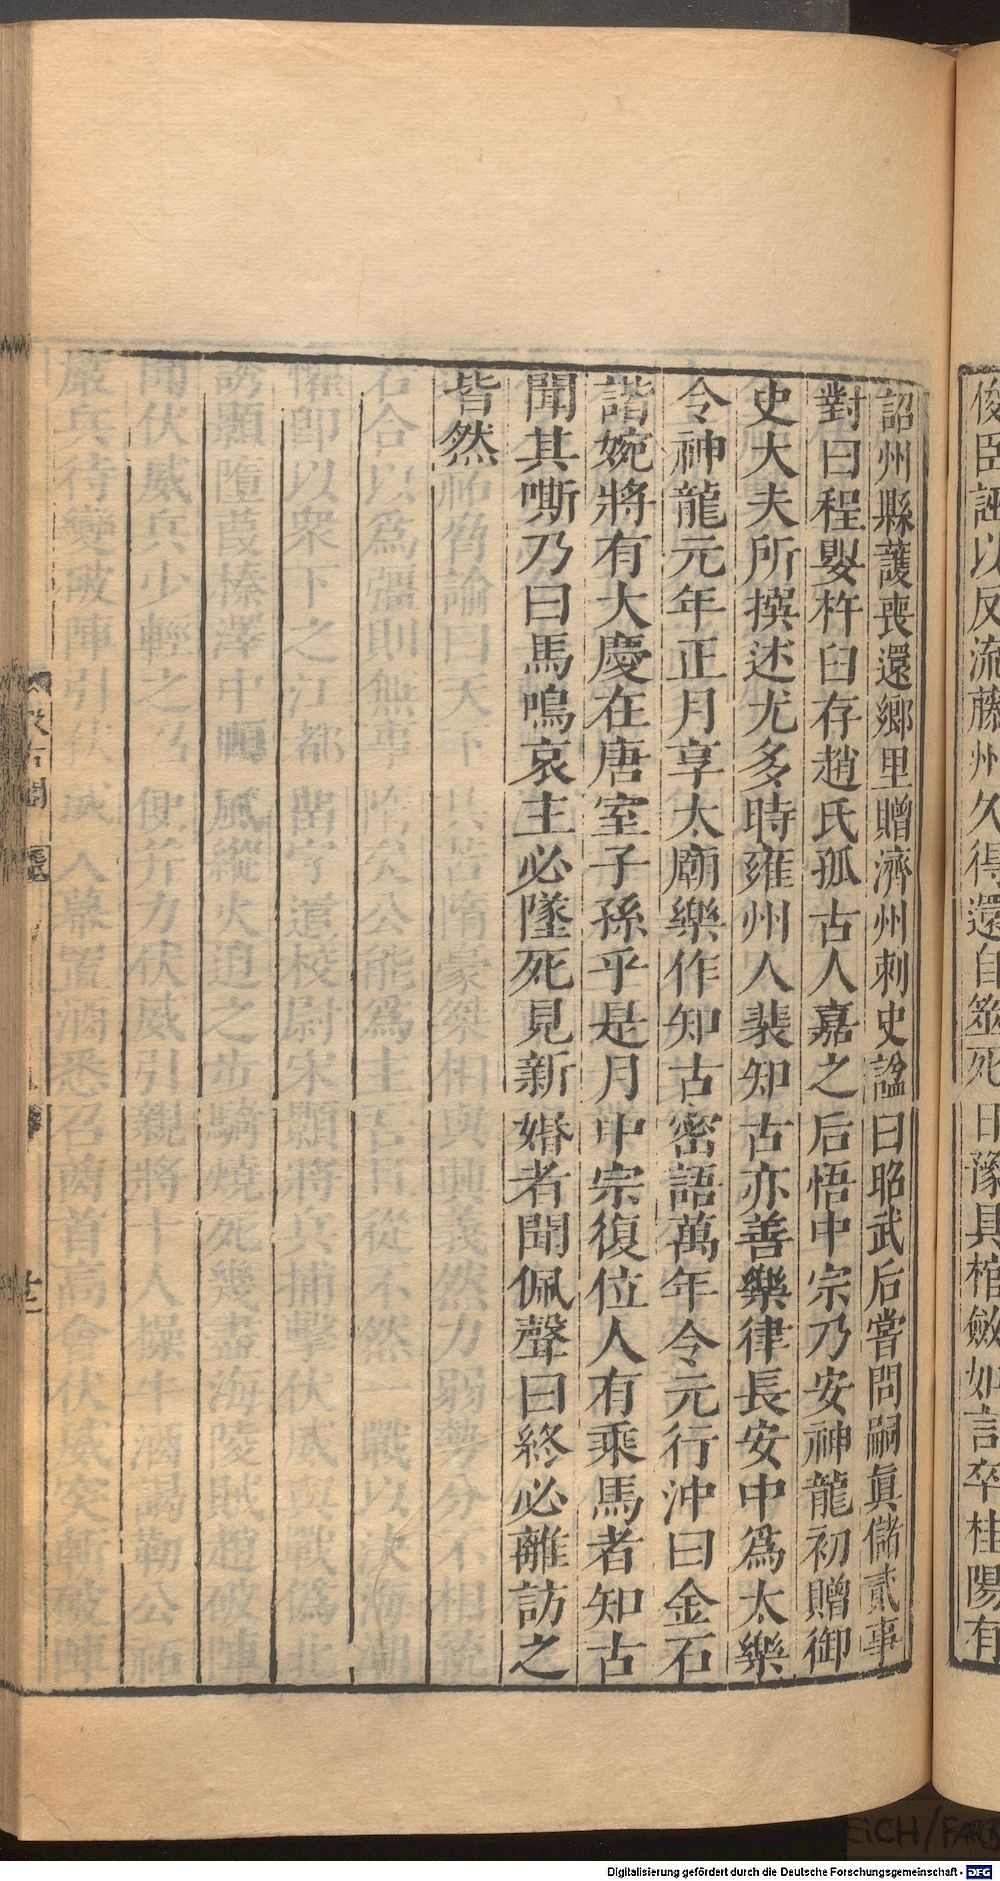 俊臣誣以反流藤州久得還自筮死日豫具棺斂如言卒桂陽有
詔州縣護喪還鄉里贈濟州刺史諡曰昭武后嘗問嗣眞儲貳事
對曰程嬰杵臼存趙氏孤古人嘉之后悟中宗乃安神龍初贈御
史大夫所撰述尤多時雍州人裴知古亦善樂律長安中爲太樂
令神龍元年正月享太廟樂作知古密語萬年令元行沖曰金石
諧婉將有大慶在唐室子孫乎是月中宗復位人有乘馬者知古
聞其嘶乃曰馬鳴哀主必墜死見新婚者聞佩聲曰終必離訪之
皆然
廿二
Digitalisierung gefördert durch die Deutsche Forschungsgemeinschaft - DFG